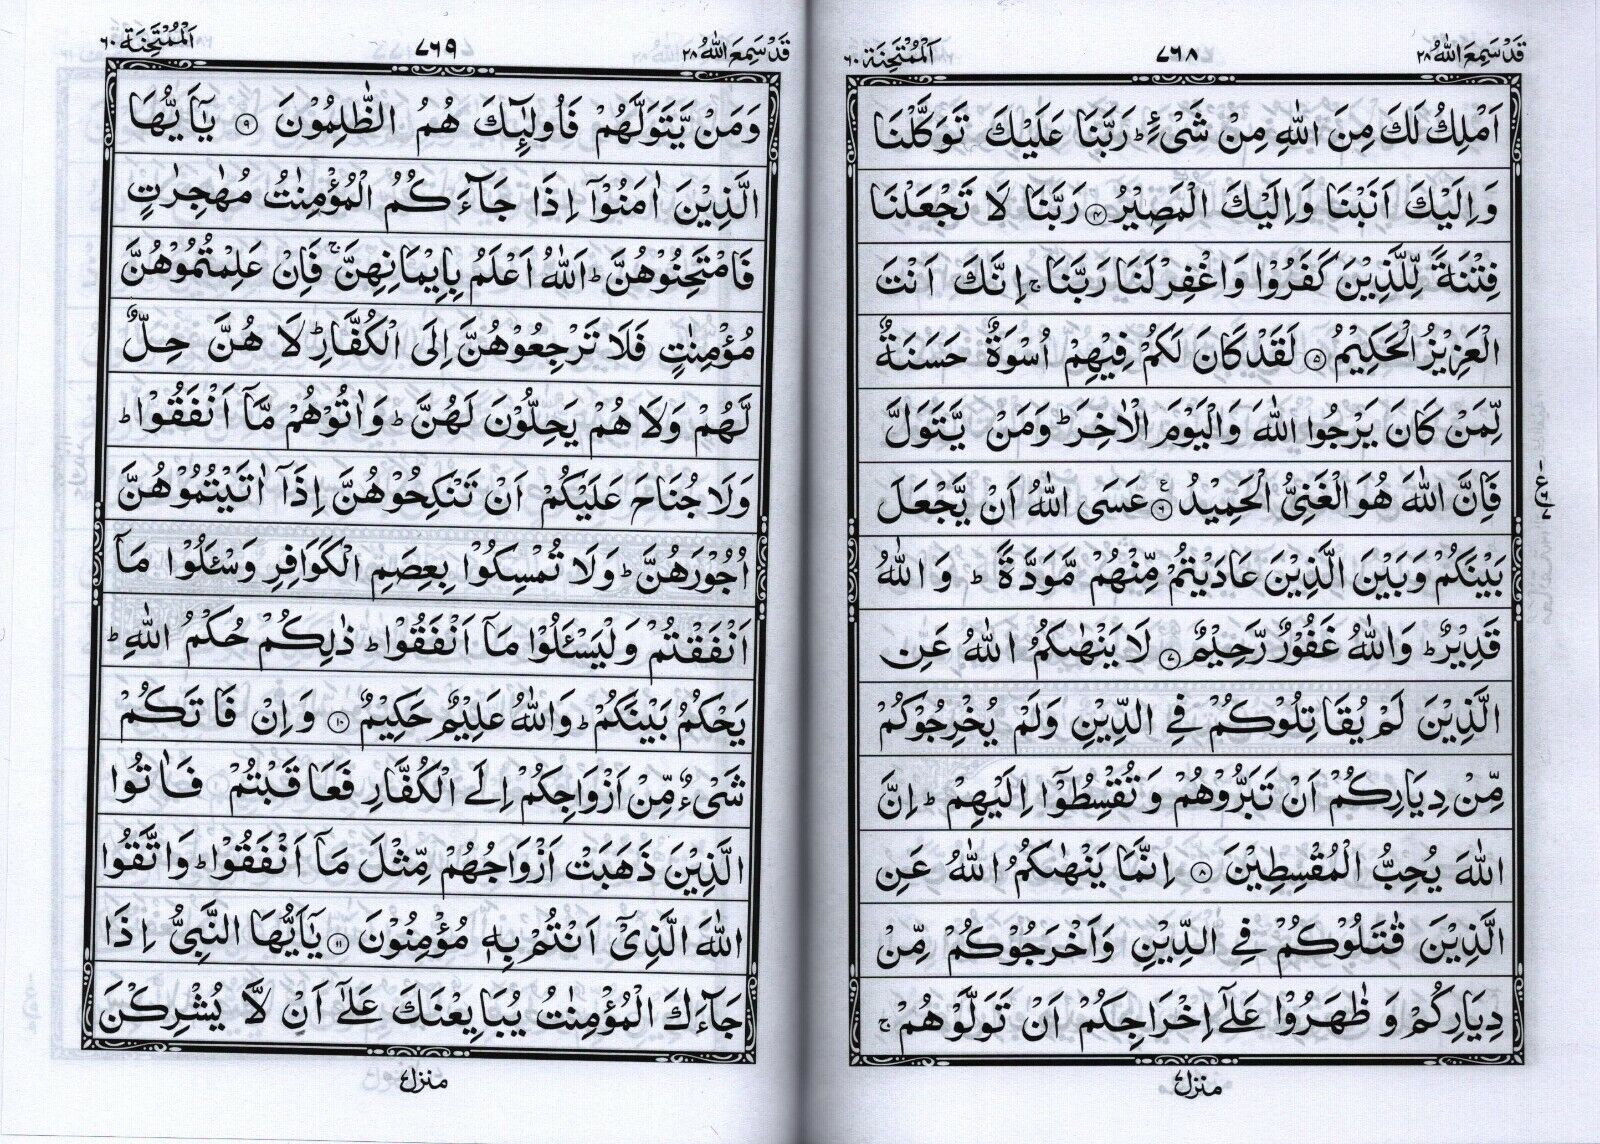 قَدْ سَمِعَ اللّٰهُ ٢٨
٧٦٨
اَلْمُمْتَحِنَة ٦٠
اَمْلِكُ لَكَ مِنَ اللّٰهِ مِنْ شَیْءٍ ؕ رَبَّنَا عَلَیْكَ تَوَكَّلْنَا
وَاِلَیْكَ اَنَبْنَا وَاِلَیْكَ الْمَصِیْرُ ﴿۴﴾ رَبَّنَا لَا تَجْعَلْنَا
فِتْنَةً لِّلَّذِیْنَ كَفَرُوْا وَاغْفِرْ لَنَا رَبَّنَا ۚ اِنَّكَ اَنْتَ
الْعَزِیْزُ الْحَكِیْمُ ﴿۵﴾ لَقَدْ كَانَ لَكُمْ فِیْهِمْ اُسْوَةٌ حَسَنَةٌ
لِّمَنْ كَانَ یَرْجُوا اللّٰهَ وَالْیَوْمَ الْاٰخِرَ ؕ وَمَنْ یَّتَوَلَّ
فَاِنَّ اللّٰهَ هُوَ الْغَنِیُّ الْحَمِیْدُ ﴿۶﴾ عَسَی اللّٰهُ اَنْ یَّجْعَلَ
بَیْنَكُمْ وَبَیْنَ الَّذِیْنَ عَادَیْتُمْ مِّنْهُمْ مَّوَدَّةً ؕ وَاللّٰهُ
قَدِیْرٌ ؕ وَاللّٰهُ غَفُوْرٌ رَّحِیْمٌ ﴿۷﴾ لَا یَنْهٰىكُمُ اللّٰهُ عَنِ
الَّذِیْنَ لَمْ یُقَاتِلُوْكُمْ فِی الدِّیْنِ وَلَمْ یُخْرِجُوْكُمْ
مِّنْ دِیَارِكُمْ اَنْ تَبَرُّوْهُمْ وَتُقْسِطُوْۤا اِلَیْهِمْ ؕ اِنَّ
اللّٰهَ یُحِبُّ الْمُقْسِطِیْنَ ﴿۸﴾ اِنَّمَا یَنْهٰىكُمُ اللّٰهُ عَنِ
الَّذِیْنَ قٰتَلُوْكُمْ فِی الدِّیْنِ وَاَخْرَجُوْكُمْ مِّنْ
دِیَارِكُمْ وَظٰهَرُوْا عَلٰۤی اِخْرَاجِكُمْ اَنْ تَوَلَّوْهُمْ ۚ
منزل ٧
قَدْ سَمِعَ اللّٰهُ ٢٨
٧٦٩
اَلْمُمْتَحِنَة ٦٠
وَمَنْ یَّتَوَلَّهُمْ فَاُولٰٓىِٕكَ هُمُ الظّٰلِمُوْنَ ﴿۹﴾ یٰۤاَیُّهَا
الَّذِیْنَ اٰمَنُوْۤا اِذَا جَآءَكُمُ الْمُؤْمِنٰتُ مُهٰجِرٰتٍ
فَامْتَحِنُوْهُنَّ ؕ اَللّٰهُ اَعْلَمُ بِاِیْمَانِهِنَّ ۚ فَاِنْ عَلِمْتُمُوْهُنَّ
مُؤْمِنٰتٍ فَلَا تَرْجِعُوْهُنَّ اِلَی الْكُفَّارِ ؕ لَا هُنَّ حِلٌّ
لَّهُمْ وَلَا هُمْ یَحِلُّوْنَ لَهُنَّ ؕ وَاٰتُوْهُمْ مَّاۤ اَنْفَقُوْا ؕ
وَلَا جُنَاحَ عَلَیْكُمْ اَنْ تَنْكِحُوْهُنَّ اِذَاۤ اٰتَیْتُمُوْهُنَّ
اُجُوْرَهُنَّ ؕ وَلَا تُمْسِكُوْا بِعِصَمِ الْكَوَافِرِ وَسْـَٔلُوْا مَاۤ
اَنْفَقْتُمْ وَلْیَسْـَٔلُوْا مَاۤ اَنْفَقُوْا ؕ ذٰلِكُمْ حُكْمُ اللّٰهِ ؕ
یَحْكُمُ بَیْنَكُمْ ؕ وَاللّٰهُ عَلِیْمٌ حَكِیْمٌ ﴿۱۰﴾ وَاِنْ فَاتَكُمْ
شَیْءٌ مِّنْ اَزْوَاجِكُمْ اِلَی الْكُفَّارِ فَعَاقَبْتُمْ فَاٰتُوا
الَّذِیْنَ ذَهَبَتْ اَزْوَاجُهُمْ مِّثْلَ مَاۤ اَنْفَقُوْا ؕ وَاتَّقُوا
اللّٰهَ الَّذِیْۤ اَنْتُمْ بِهٖ مُؤْمِنُوْنَ ﴿۱۱﴾ یٰۤاَیُّهَا النَّبِیُّ اِذَا
جَآءَكَ الْمُؤْمِنٰتُ یُبَایِعْنَكَ عَلٰۤی اَنْ لَّا یُشْرِكْنَ
منزل ٧